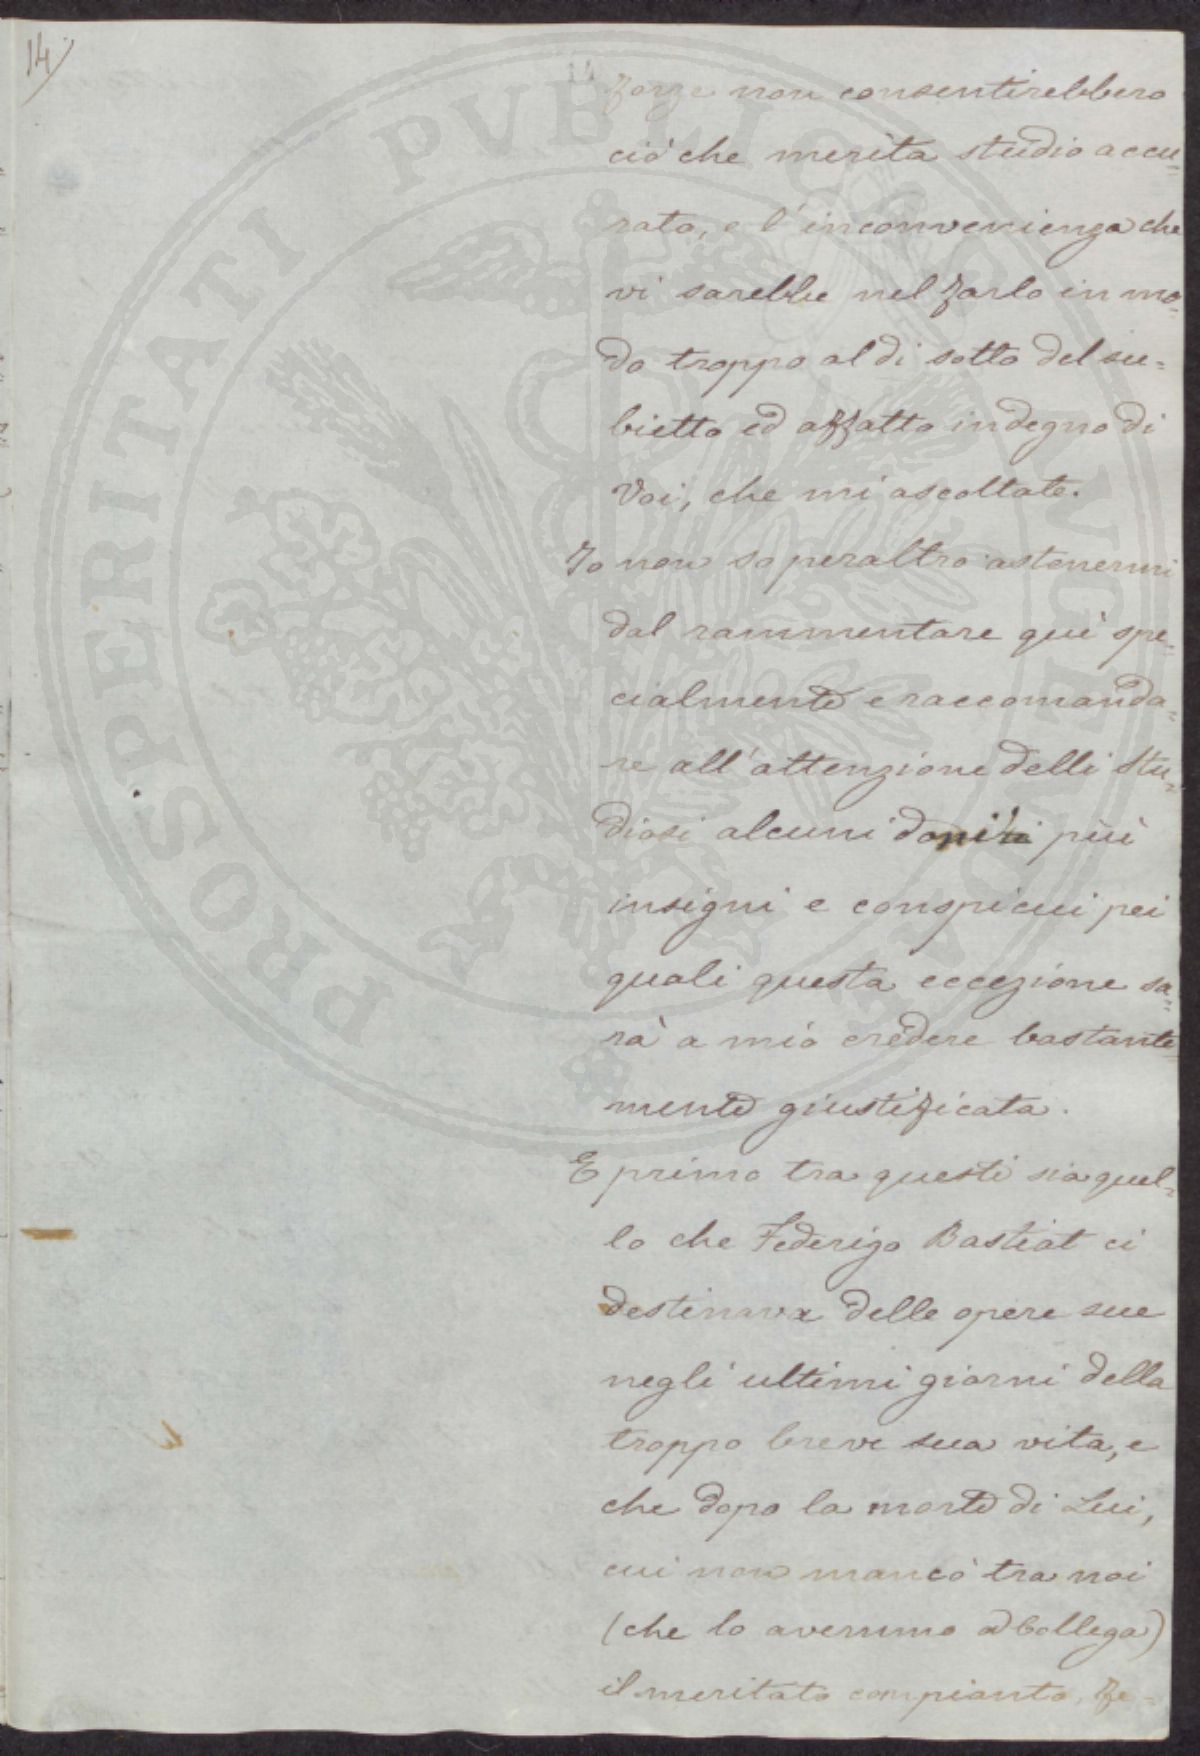 14
14
forze non consentirebbero
ciò che merita studio accu=
rato, e l'inconvenienza che
vi sarebbe nel farlo in mo=
do troppo al di sotto del su=
bietto ed affatto indegno di
Voi, che mi ascoltate.
Io non so peraltro astenermi
dal rammentare quì spe=
cialmente e raccomanda=
re all'attenzione delli Stu=
diosi alcuni doni più
insigni e conspicui pei
quali questa eccezione sa=
rà a mio credere bastante
mente giustificata.
E primo tra questi sia quel=
lo che Federigo Bastiat ci
destinava delle opere sue
negli ultimi giorni della
troppo breve sua vita, e
che dopo la morte di Lui,
cui non mancò tra noi
(che lo avemmo a Collega)
il meritato compianto, fe=
PROSPERITATI PVBLICAE AVGENDAE